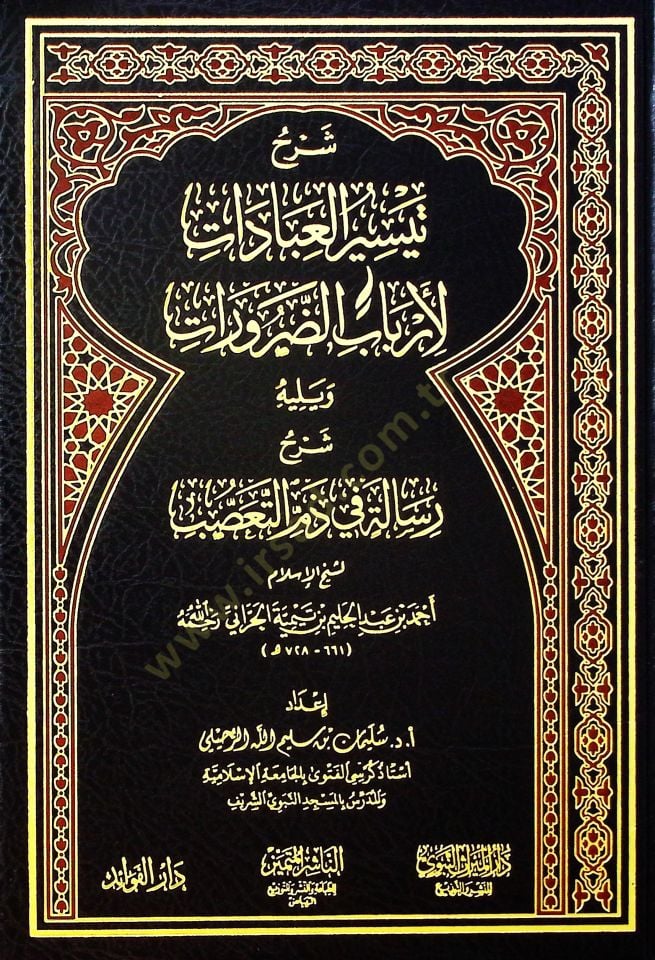 شَرْحُ
تَيْسِيْرِ الْعِبَادَاتِ
لِأَرْبَابِ الضَّرُورَاتِ
وَيَلِيهِ
شَرْحُ
رِسَالَةٍ فِي ذَمِّ التَّعَصُّبِ
لشيخ الإسلام
أَحْمَدَ بْنِ عَبْدِ الْحَلِيمِ بْنِ تَيْمِيَّةَ الْحَرَّانِيِّ رَحِمَهُ اللَّهُ
(٦٦١ - ٧٢٨ هـ)
إِعْدَادُ
أ.د. سُلَيْمَان بْن سَلِيمِ اللَّه الرُّحَيْلِي
أُسْتَاذُ كُرْسِيِّ الفَتْوَى بِالجَامِعَةِ الإِسْلَامِيَّةِ
وَالمُدَرِّسُ بِالمَسْجِدِ النَّبَوِيِّ الشَّرِيفِ
دار الميراث النبوي
للنشر والتوزيع
الناشر المتميز
للطباعة والنشر والتوزيع
الرياض
دار الفوائد